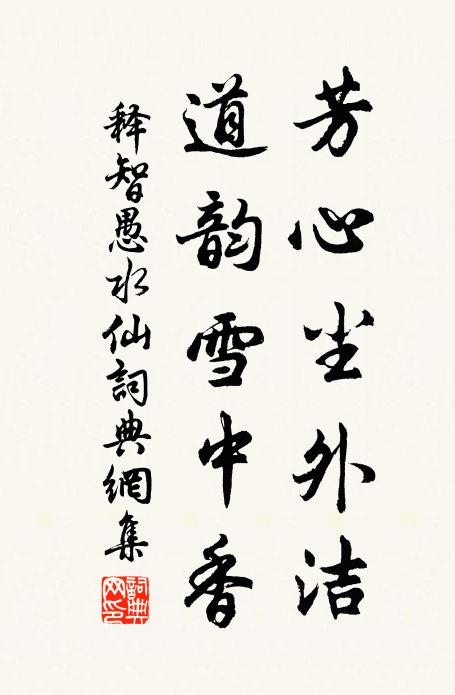 芳心尘外洁
道韵雪中香
释智愚水仙詞典網集
詞典
网印